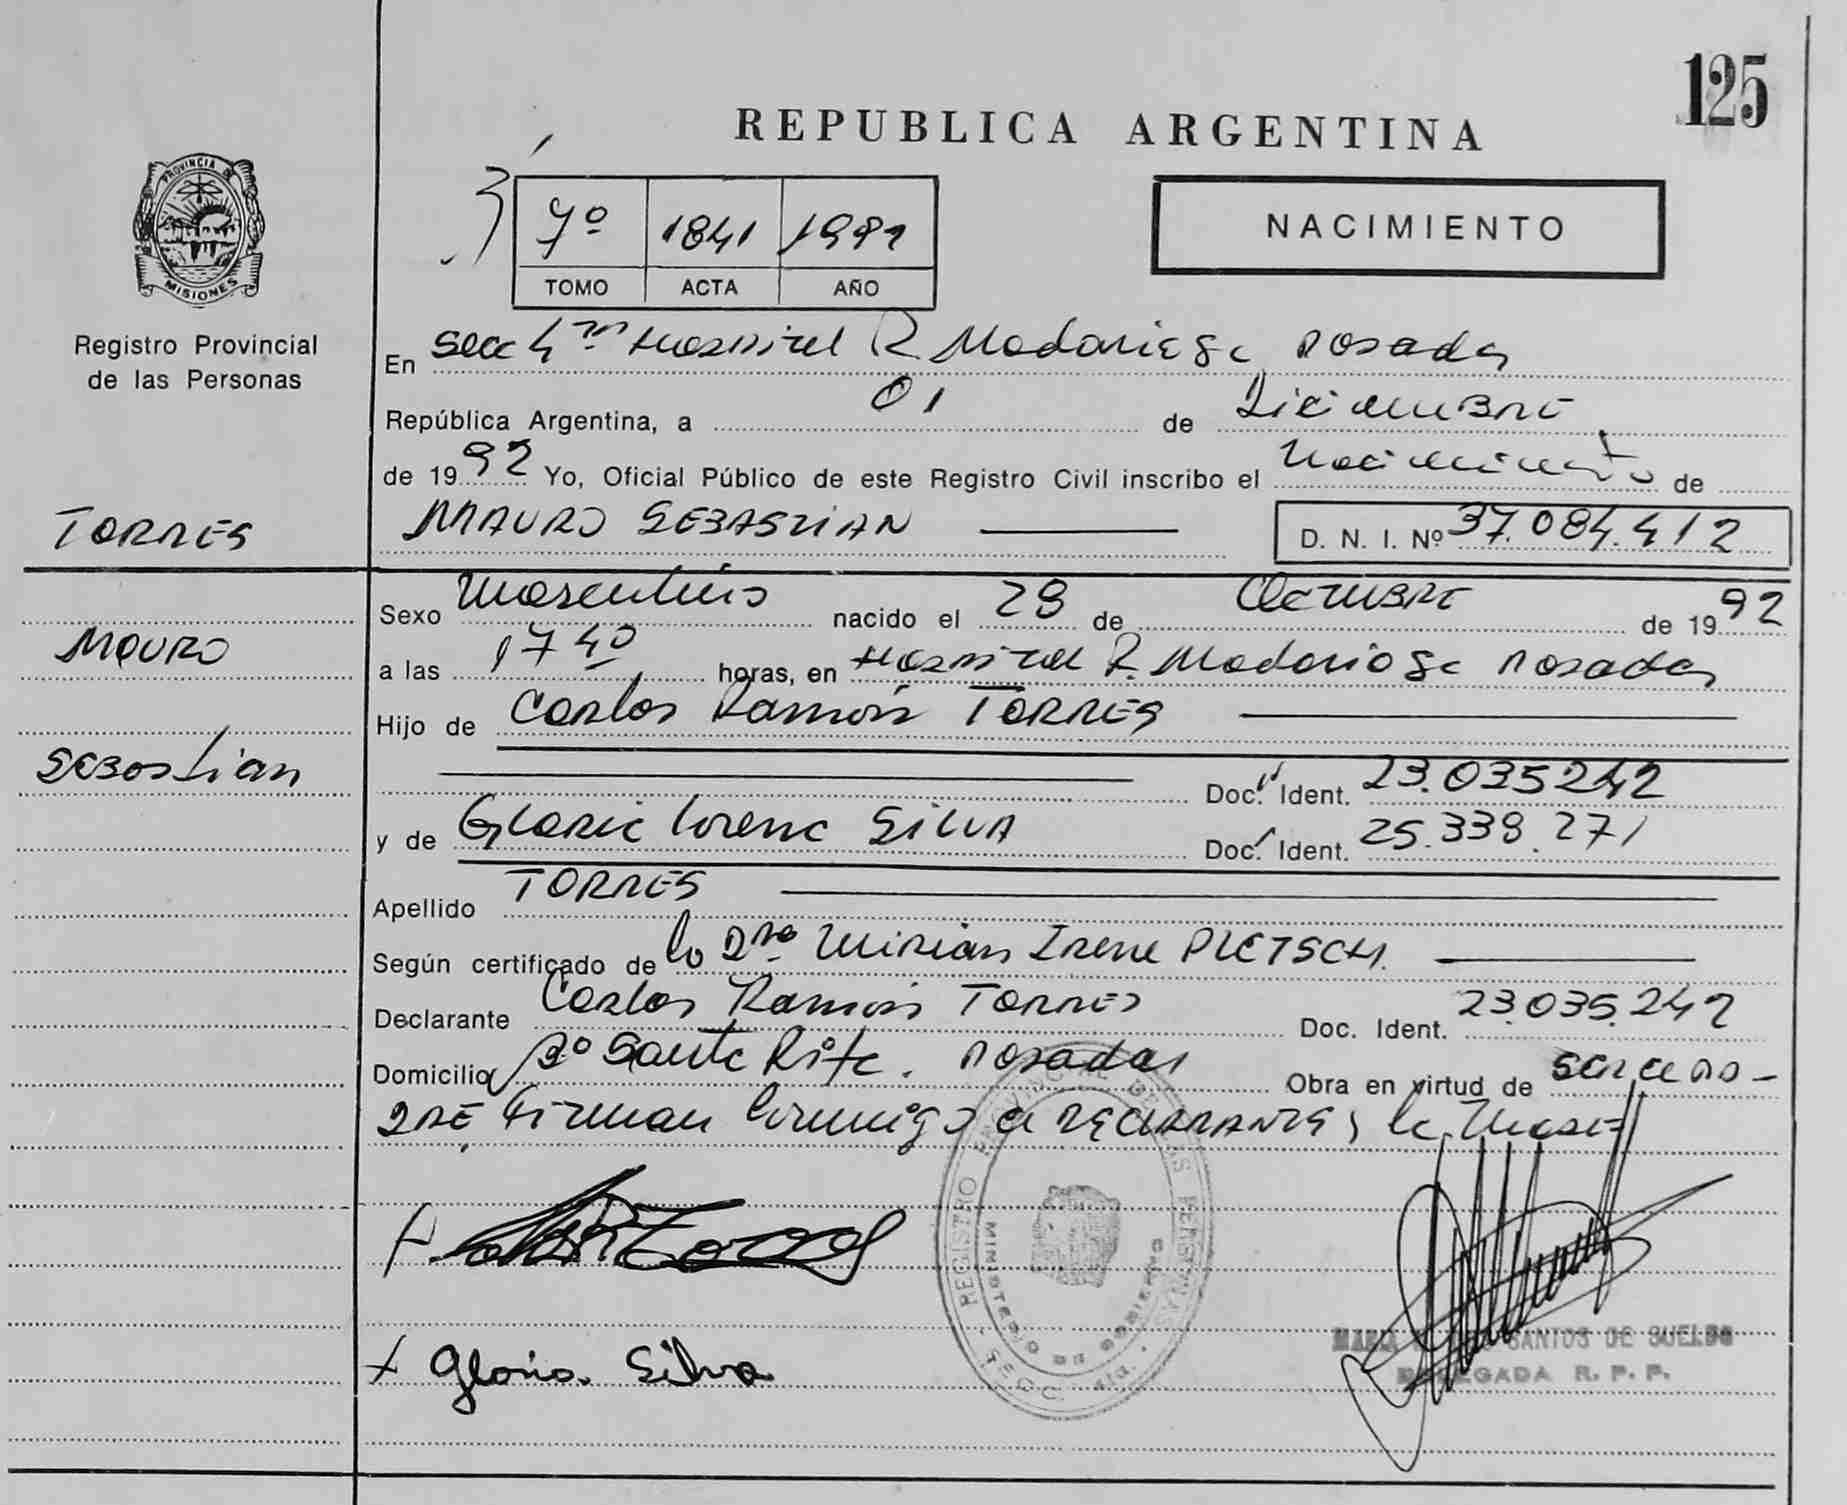 125
REPUBLICA ARGENTINA
PROVINCIA DE
MISIONES
Registro Provincial
de las Personas
7º 1841 1992
TOMO ACTA AÑO
NACIMIENTO
En Secc 4ta Hospital R Madariaga Posadas
República Argentina, a 01 de Diciembre
de 1992 Yo, Oficial Público de este Registro Civil inscribo el Nacimiento de
TORRES MAURO SEBASTIAN D. N. I. Nº 37.084.412
Sexo Masculino nacido el 28 de Octubre de 1992
Mauro
a las 17 40 horas, en Hospital R. Madariaga Posadas
Hijo de Carlos Ramón TORRES
Sebastian
Doc. Ident. 23.035242
y de Gloria Lorena SILVA Doc. Ident. 25.338.271
Apellido TORRES
Según certificado de la Dra. Mirian Irene PLETSCH.
Declarante Carlos Ramón TORRES Doc. Ident. 23.035.242
Domicilio Bº Santa Rita. Posadas Obra en virtud de ser el pa-
dre, Firman conmigo el DECLARANTE y la Madre
REGISTRO PROVINCIAL DE LAS PERSONAS
MINISTERIO DE GOBIERNO
SECC. 4ta.
x Gloria Silva
SANTOS DE SUELDO
DELEGADA R. P. P.